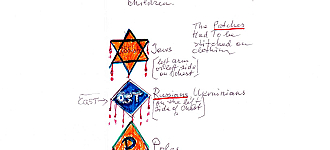 children
The Patches
Had To be
stitched on
clothing
Jews
(left arm
or left side
on chest)
OST
East
Russians Ukrainians
(on the left
side of chest)
P
Poles